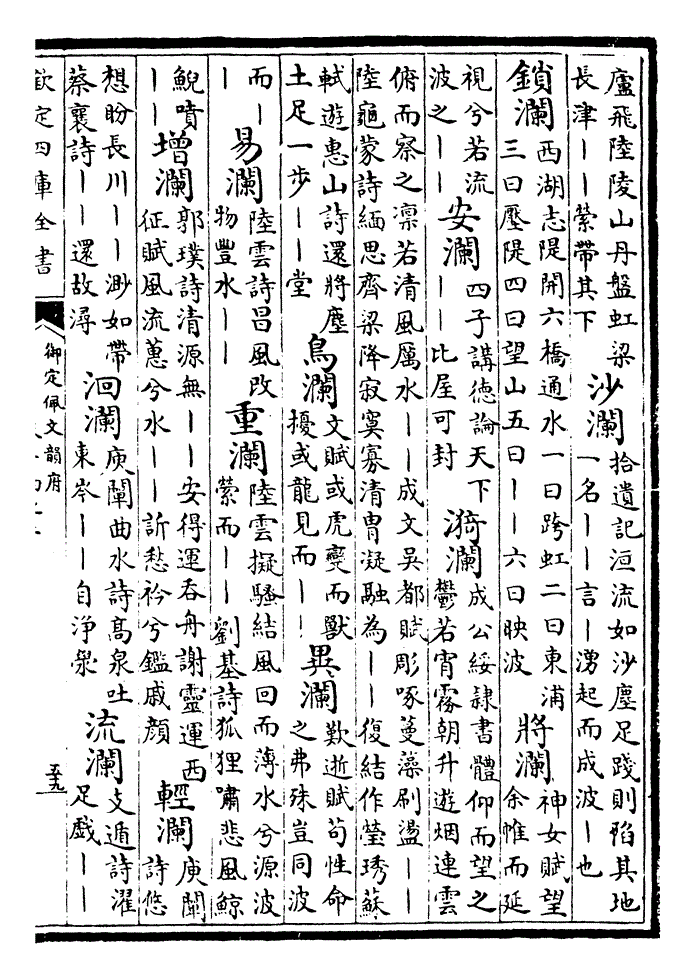 廬飛陸陵山丹盤虹梁
長津丨丨縈帶其下
沙瀾
拾遺記洹流如沙塵足踐則陷其地
一名丨丨言丨湧起而成波丨也
鎖瀾
西湖志隄開六橋通水一曰跨虹二曰東浦
三曰壓隄四曰望山五曰丨丨六曰映波
將瀾
神女賦望
余惟而延
視兮若流
波之丨丨
安瀾
四子講德論天下
丨丨比屋可封
漪瀾
成公綏隸書體仰而望之
鬱若宵霧朝升遊烟連雲
俯而察之凛若清風厲水丨丨成文吳都賦彫啄蔓藻刷盪丨丨
陸龜蒙詩緬思齊梁降寂寞寡清胄凝融為丨丨復結作瑩琇蘇
軾遊惠山詩還將塵
土足一步丨丨堂
鳥瀾
文賦或虎變而獸
擾或龍見而丨丨
異瀾
歎逝賦苟性命
之弗殊豈同波
而丨
丨
易瀾
陸雲詩昌風改
物豐水丨丨
重瀾
陸雲擬騷結風回而薄水兮源波
縈而丨丨劉基詩狐狸嘯悲風鯨
鯢噴
丨丨
增瀾
郭璞詩清源無丨丨安得運吞舟謝靈運西
征賦風流蕙兮水丨丨訢愁衿兮鑑戚顏
輕瀾
庾闡
詩悠
想盼長川丨丨渺如帶
蔡襄詩丨丨還故潯
洄瀾
庾闡曲水詩高泉吐
東岑丨丨自浄滎
流瀾
支遁詩濯
足戲丨丨
欽定四庫全書
御定佩文韻府
五九